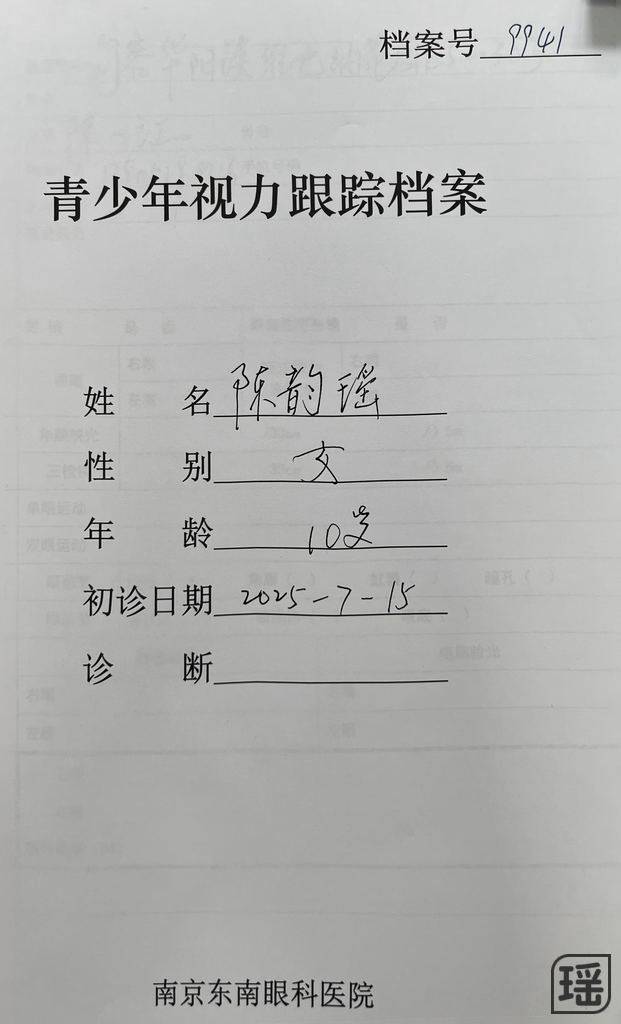 档案号 9941
青少年视力跟踪档案
姓 名 陈韵瑶
性 别 女
年 龄 10岁
初诊日期 2025-7-15
诊 断
南京东南眼科医院
瑶